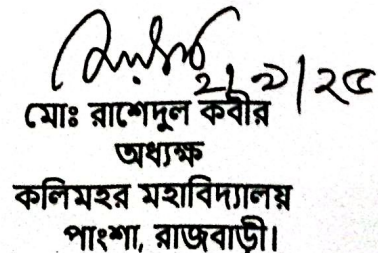 মোঃ রাশেদুল কবীর
অধ্যক্ষ
কলিমহর মহাবিদ্যালয়
পাংশা, রাজবাড়ী।